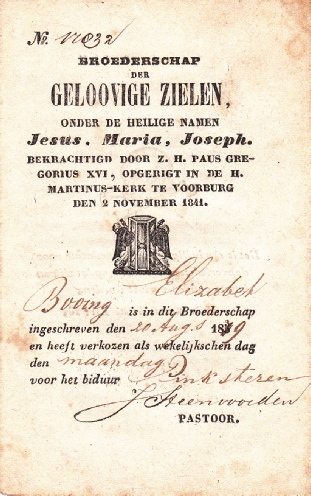 № 17832
BROEDERSCHAP
DER
GELOOVIGE ZIELEN,
ONDER DE HEILIGE NAMEN
Jesus, Maria, Joseph.
BEKRACHTIGD DOOR Z. H. PAUS GRE-
GORIUS XVI, OPGERIGT IN DE H.
MARTINUS-KERK TE VOORBURG
DEN 2 NOVEMBER 1841.
Elizabet
Booing is in dit Broederschap
ingeschreven den 20 Augs 1879
en heeft verkozen als wekelijkschen dag
den maandag
voor het biduur Pinksteren
J Steenvoorden
PASTOOR.